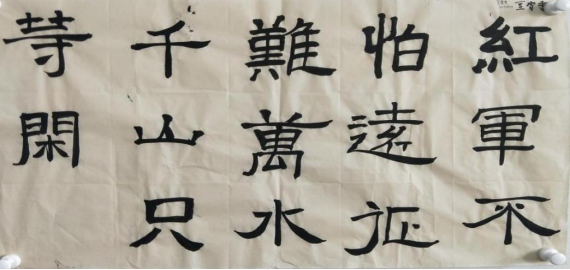 紅軍不
怕遠征
難萬水
千山只
等閑